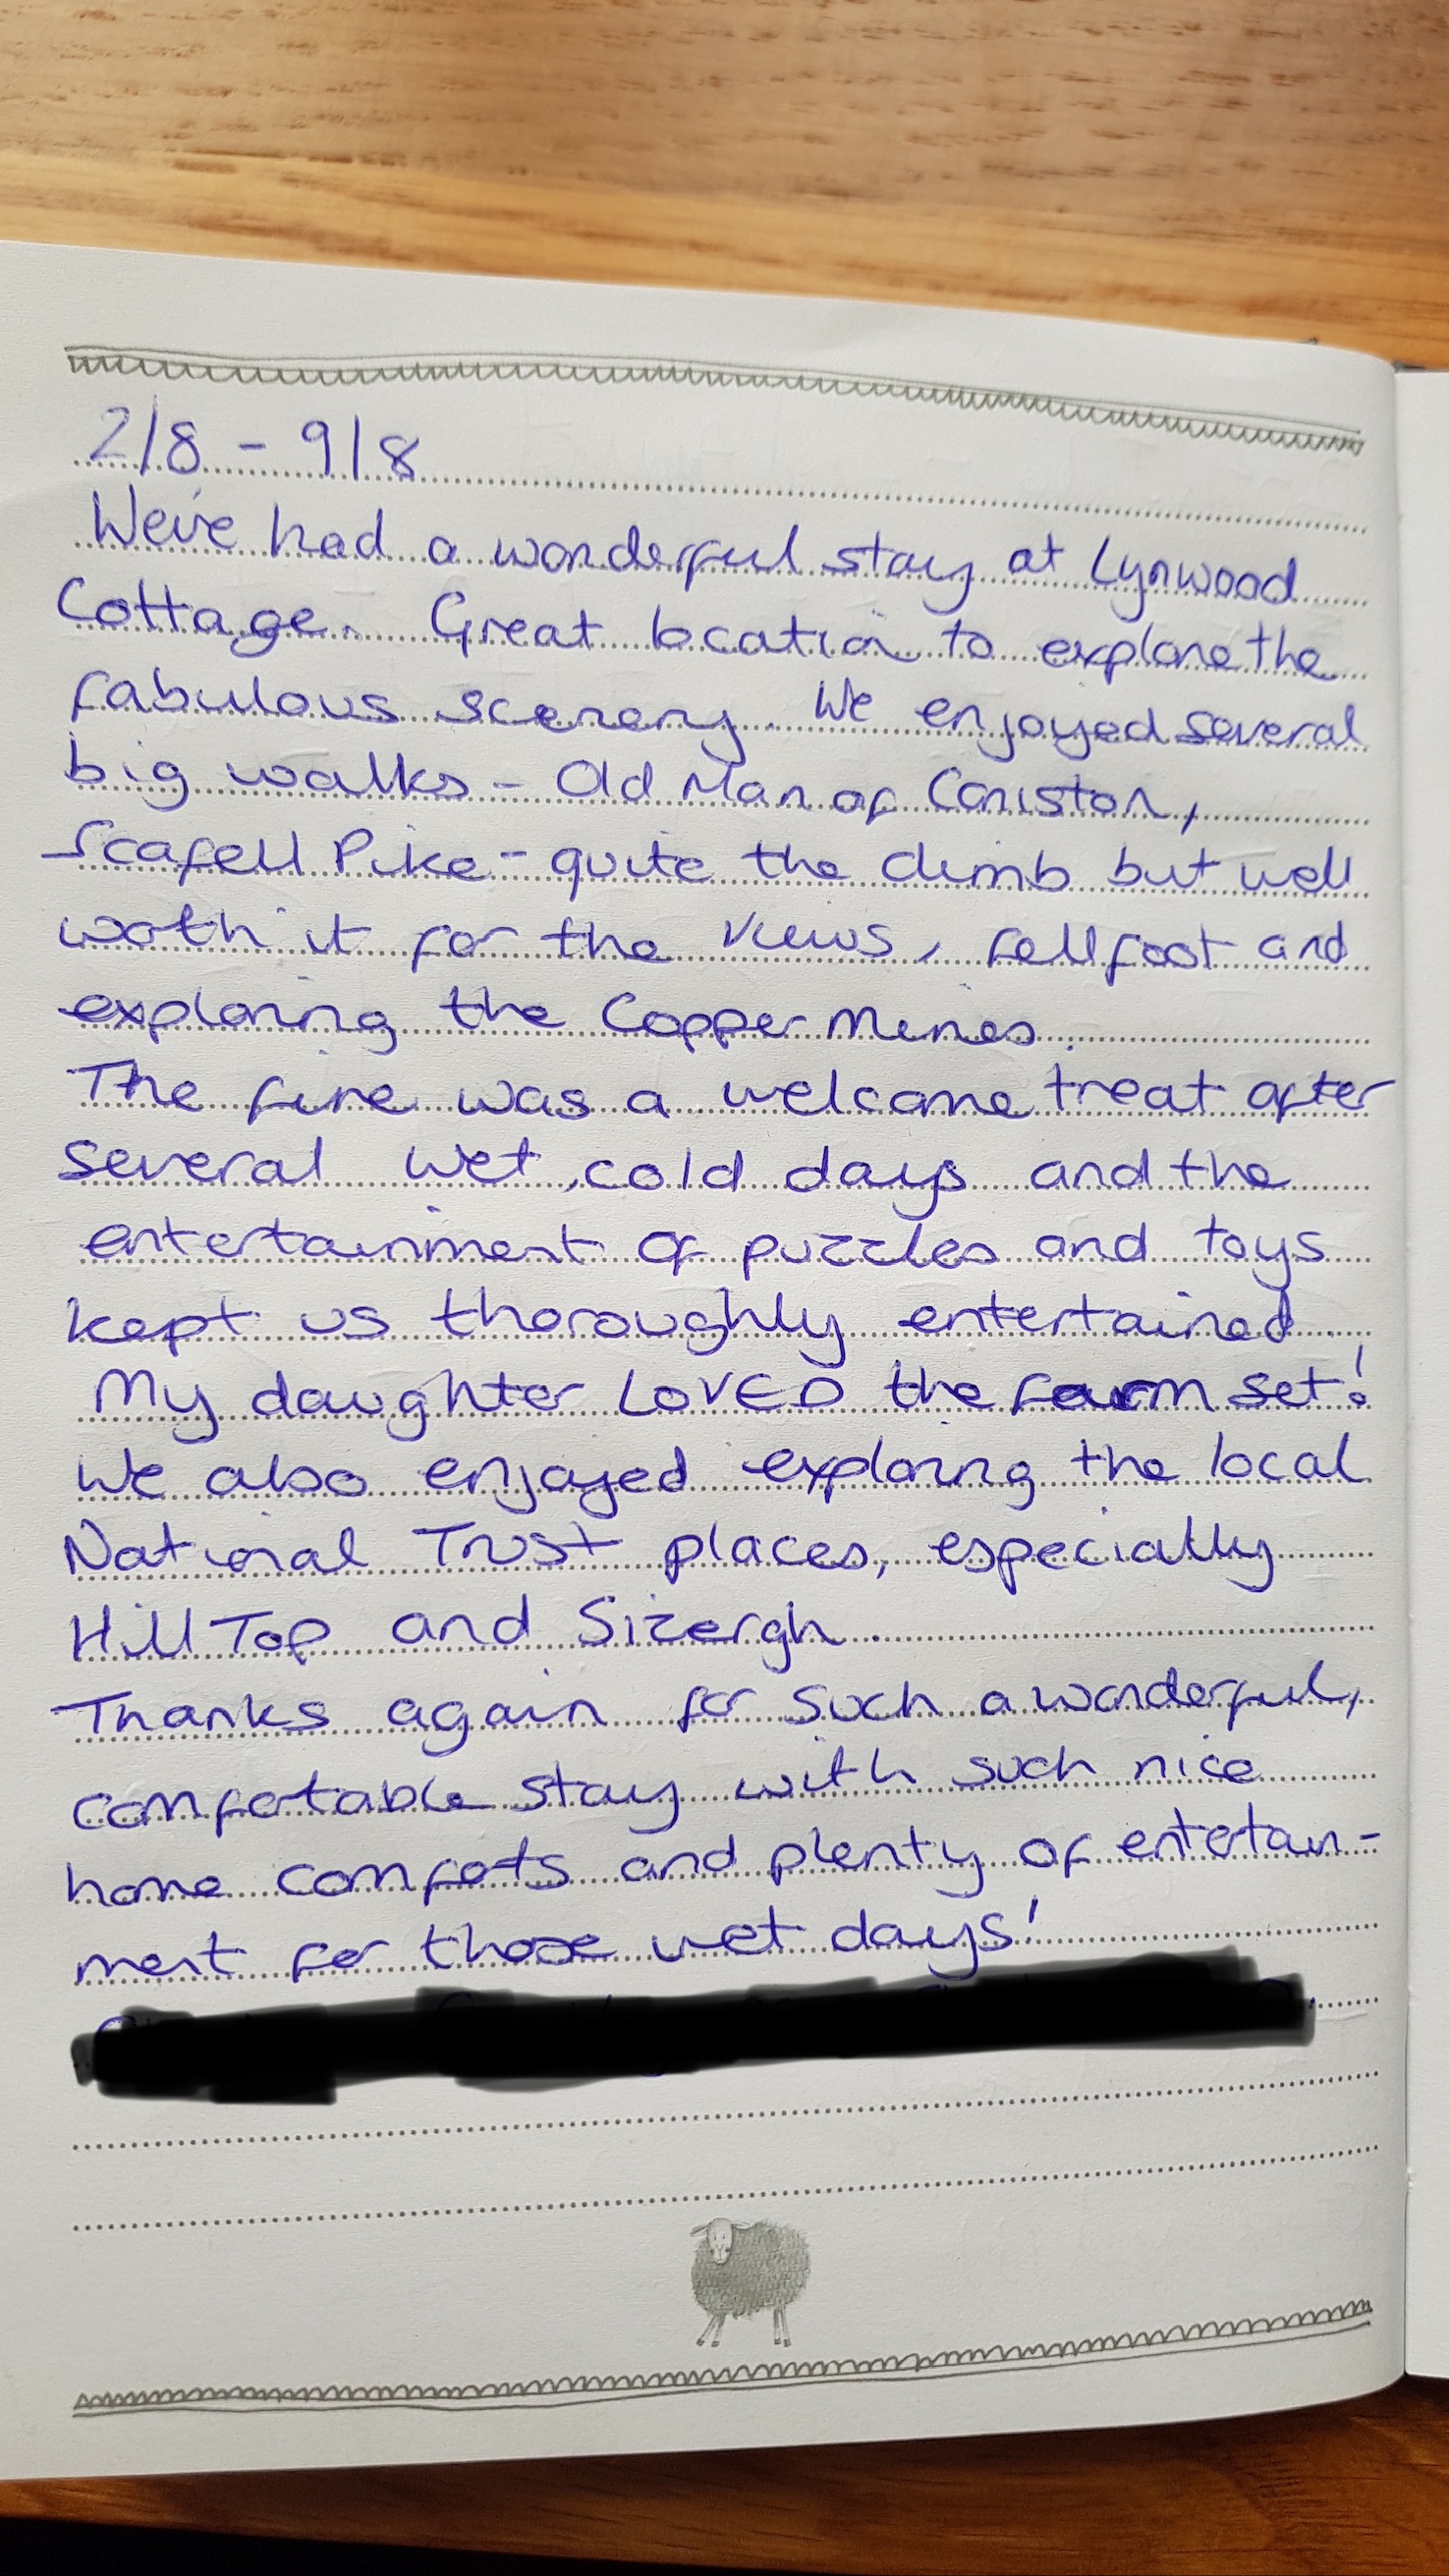 2/8 - 9/8
We've had a wonderful stay at Lynwood
Cottage. Great location to explore the
fabulous scenery. We enjoyed several
big walks - Old Man of Coniston,
Scafell Pike - quite the climb but well
worth it for the views, fell foot and
exploring the Copper Mines.
The fire was a welcome treat after
several wet, cold days and the
entertainment of puzzles and toys
kept us thoroughly entertained.
My daughter LOVED the farm set!
We also enjoyed exploring the local
National Trust places, especially
Hill Top and Sizergh.
Thanks again for such a wonderful,
comfortable stay with such nice
home comforts and plenty of entertain-
ment for those wet days!